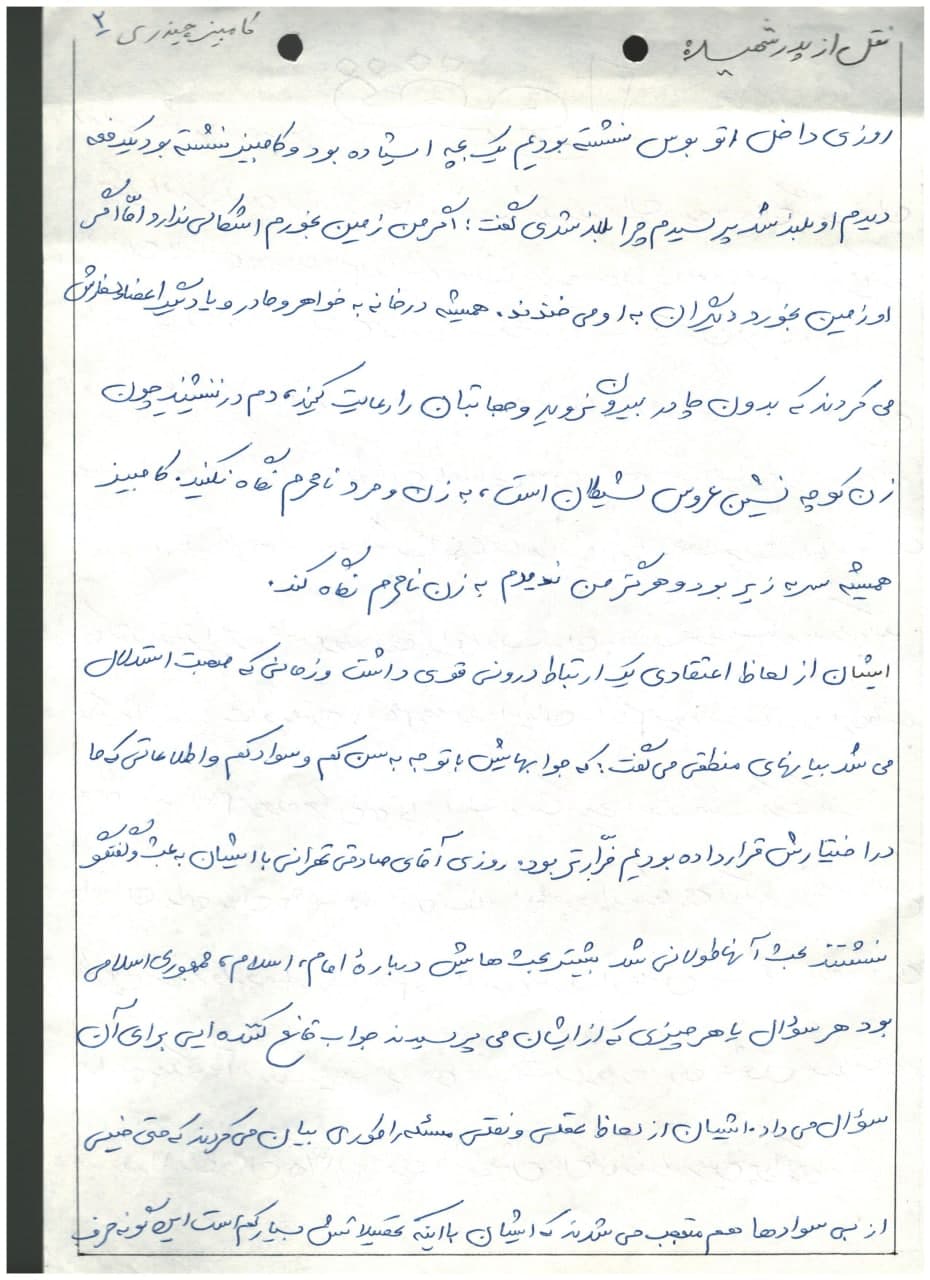 نقل از پدر شهید
کامبیز چیذری ۲
روزی داخل اتوبوس نشسته بودیم یک بچه ایستاده بود و کامبیز نشسته بود یکدفعه
دیدم او بلند شد پرسیدم چرا بلند شدی گفت؛ اگر من زمین بخورم اشکالی ندارد امّا اگر
او زمین بخورد دیگران به او می خندند. همیشه در خانه به خواهر و مادر و یا دیگر اعضاء سفارش
می کردند که بدون چادر بیرون نروید و حجابتان را رعایت کنید، دم در ننشینید چون
زن کوچه نشین عروس شیطان است، به زن و مرد نامحرم نگاه نکنید. کامبیز
همیشه سر به زیر بود و هرگز من ندیدم به زن نامحرم نگاه کند.
ایشان از لحاظ اعتقادی یک ارتباط درونی قوی داشت و زمانی که صحبت استدلال
می شد بیانهای منطقی می گفت؛ که جوابهایش با توجه به سن کم و سواد کم و اطلاعاتی که ما
در اختیارش قرار داده بودیم فرّارتر بود. روزی آقای صادقی تهرانی با ایشان به بحث و گفتگو
نشستند بحث آنها طولانی شد بیشتر بحث هایش دربارهٔ امام، اسلام، جمهوری اسلامی
بود هر سؤال یا هر چیزی که از ایشان می پرسیدند جواب قانع کننده ایی برای آن
سؤال می داد. ایشان از لحاظ عقلی و نقلی مسئله را طوری بیان می کردند که حتی خیلی
از بی سوادها هم متعجب می شدند که ایشان با اینکه تحصیلاتش بسیار کم است این گونه حرف